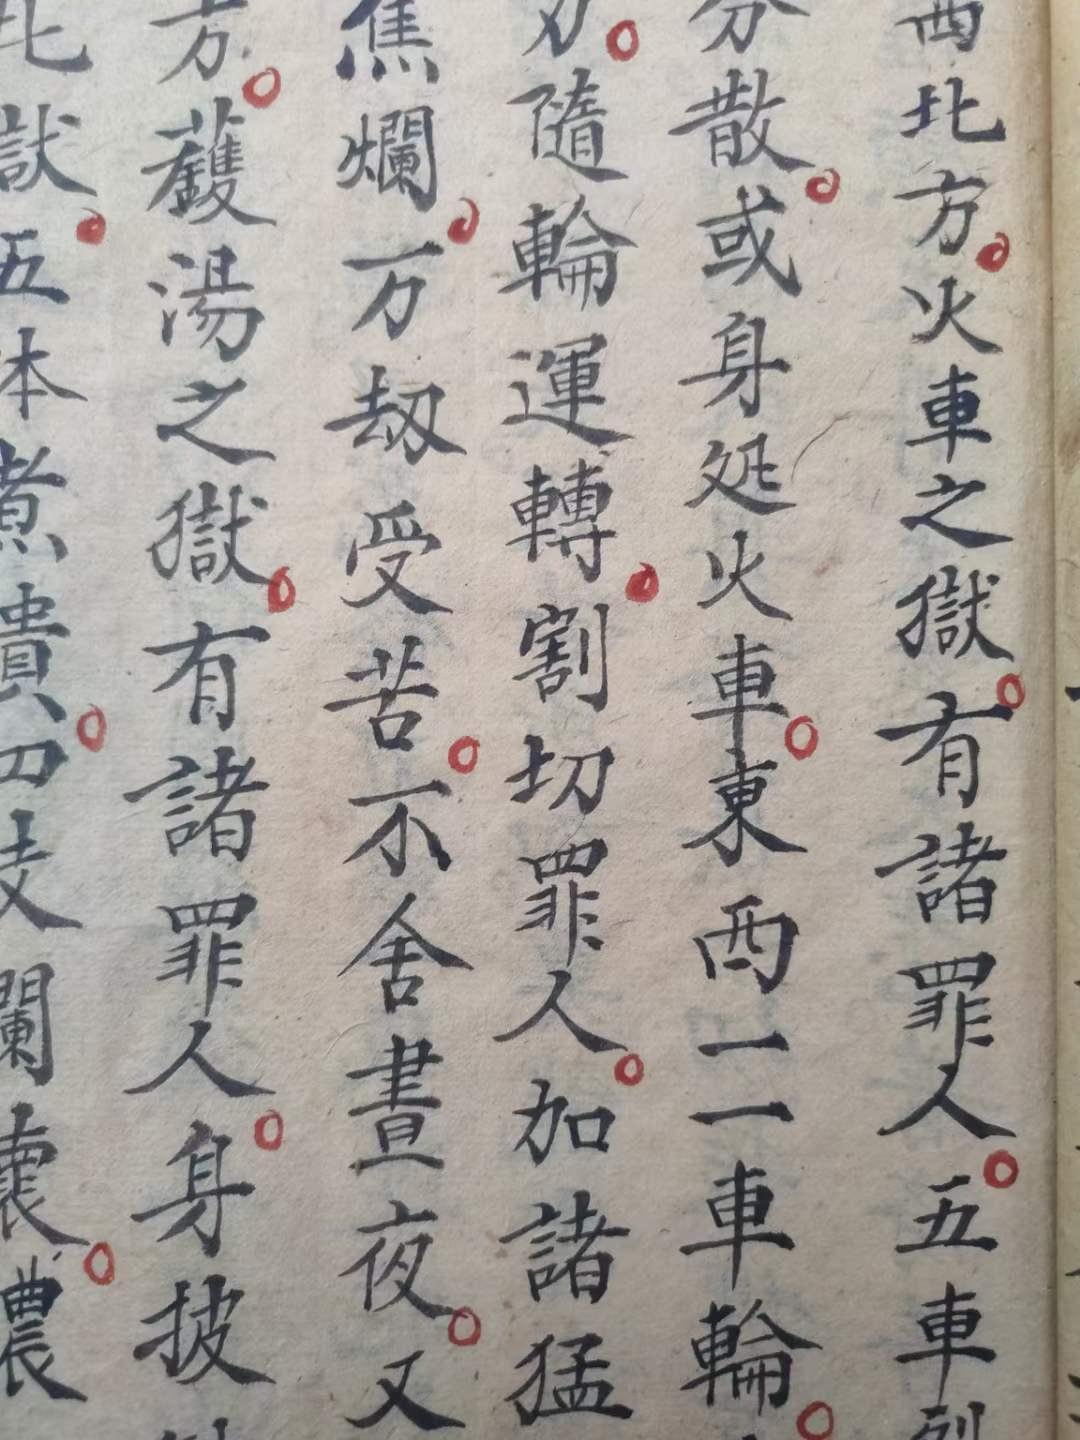 西北方。火車之獄。有諸罪人。五車列
分散。或身処火車。東西一一車輪。
刀。隨輪運轉。割切罪人。加諸猛
焦爛。万劫受苦。不舍晝夜。又
方。鑊湯之獄。有諸罪人。身披
北獄。五体煮潰。四支爛壞。膿